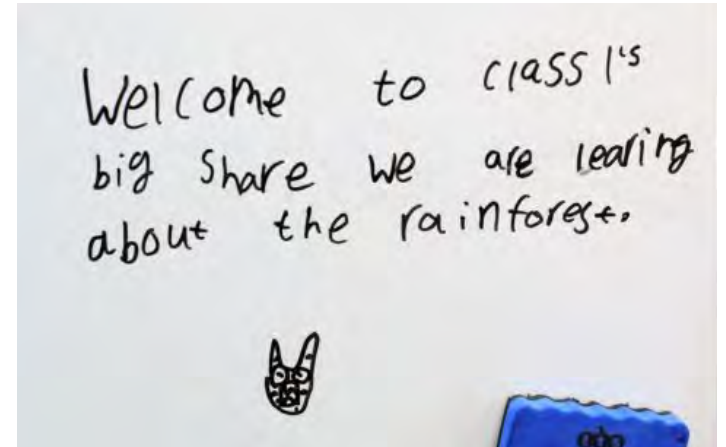 Welcome to class 1's
big share we are learing
about the rainforest.